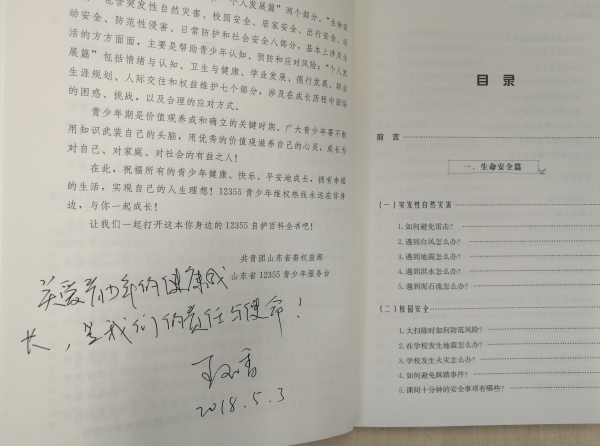 含突发性自然灾害、校园安全、居家安全、出行安全、
动安全、防范性侵害、日常防护和社会安全八部分，基本上涉及生
活的方方面面，主要是帮助青少年认知、预防和应对风险；“个人发
展篇”包括情绪与认知、卫生与健康、学业发展、德行发展、职业
生涯规划、人际交往和权益维护七个部分，涉及在成长历程中面临
的困惑、挑战，以及合理的应对方式。
青少年期是价值观养成和确立的关键时期。广大青少年要不断
用知识武装自己的头脑，用优秀的价值观滋养自己的心灵，成长为
对自己、对家庭、对社会的有益之人！
在此，祝福所有的青少年健康、快乐、平安地成长，拥有幸福
的生活，实现自己的人生理想！12355青少年维权热线永远在你身
边，与你一起成长！
让我们一起打开这本你身边的12355自护百科全书吧！
共青团山东省委权益部
山东省12355青少年服务台
关爱青少年的健康成
长，是我们的责任与使命！
2018.5.3
目 录
前 言
一、生命安全篇
（一）突发性自然灾害
1.如何避免雷击？
2.遇到台风怎么办？
3.遇到地震怎么办？
4.遇到洪水怎么办？
5.遇到泥石流怎么办？
（二）校园安全
1.大扫除时如何防范风险？
2.在学校发生地震怎么办？
3.学校发生火灾怎么办？
4.如何避免踩踏事件？
5.课间十分钟的安全事项有哪些？